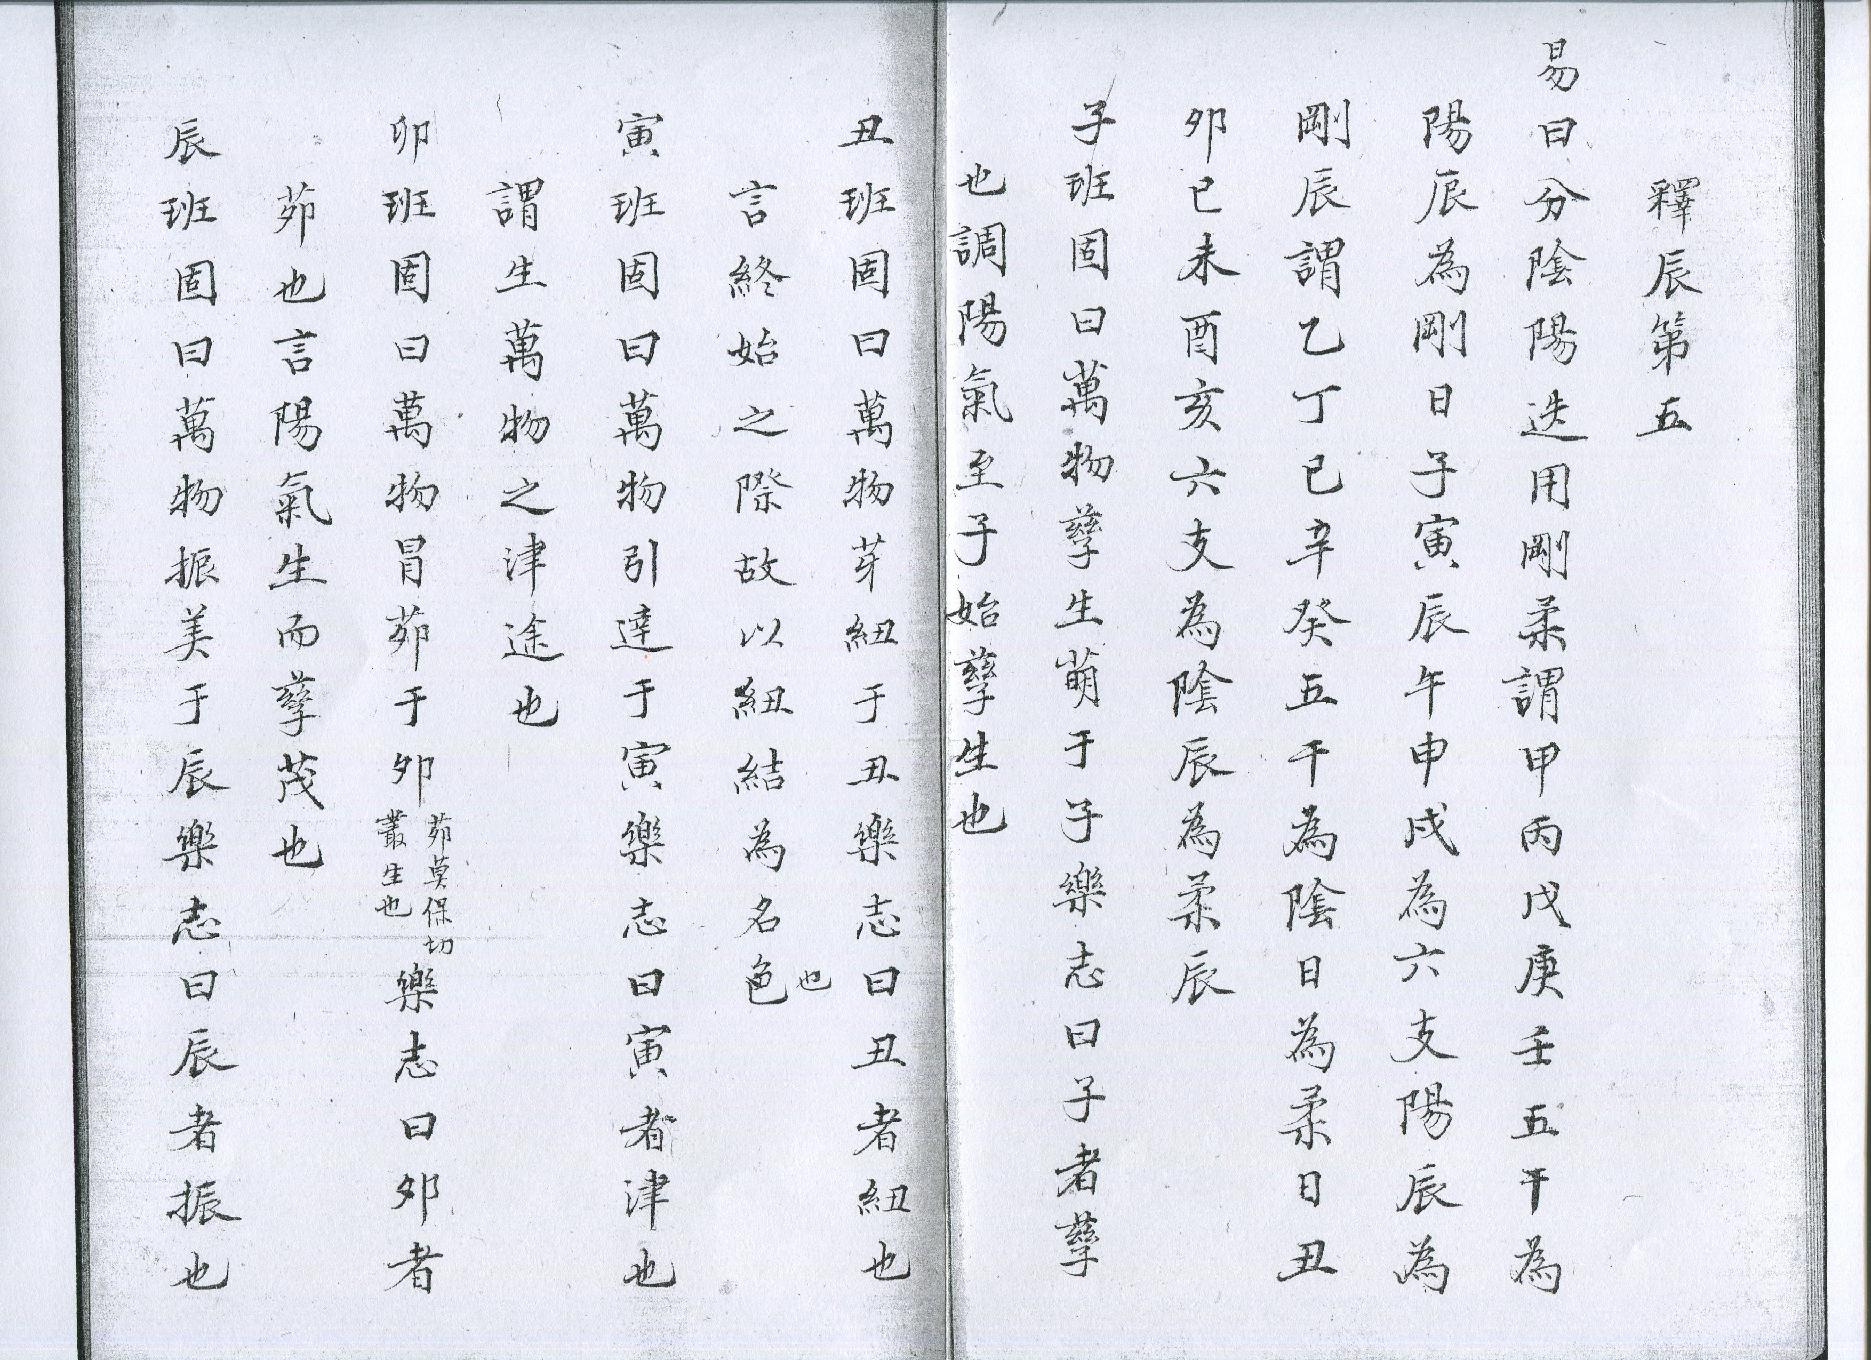 釋辰第五
易曰分陰陽迭用剛柔謂甲丙戊庚壬五干為
陽辰為剛日子寅辰午申戌為六支陽辰為
剛辰謂乙丁已辛癸五干為陰日為柔日丑
夘已未酉亥六支為陰辰為柔辰
子班固曰萬物孶生萌于子樂志曰子者孶
也調陽氣至子始孶生也
丑班固曰萬物芽紐于丑樂志曰丑者紐也
言終始之際故以紐結為名色也
寅班固曰萬物引達于寅樂志曰寅者津也
謂生萬物之津途也
卯班固曰萬物冒茆于夘茆莫保切叢生也樂志曰夘者
茆也言陽氣生而孶茂也
辰班固曰萬物振美于辰樂志曰辰者振也